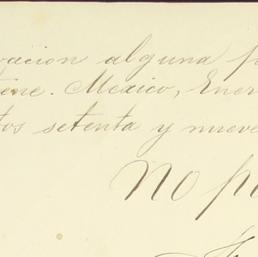 vacion alguna p
tiene. Mexico, Ener
tos setenta y nueve
No po